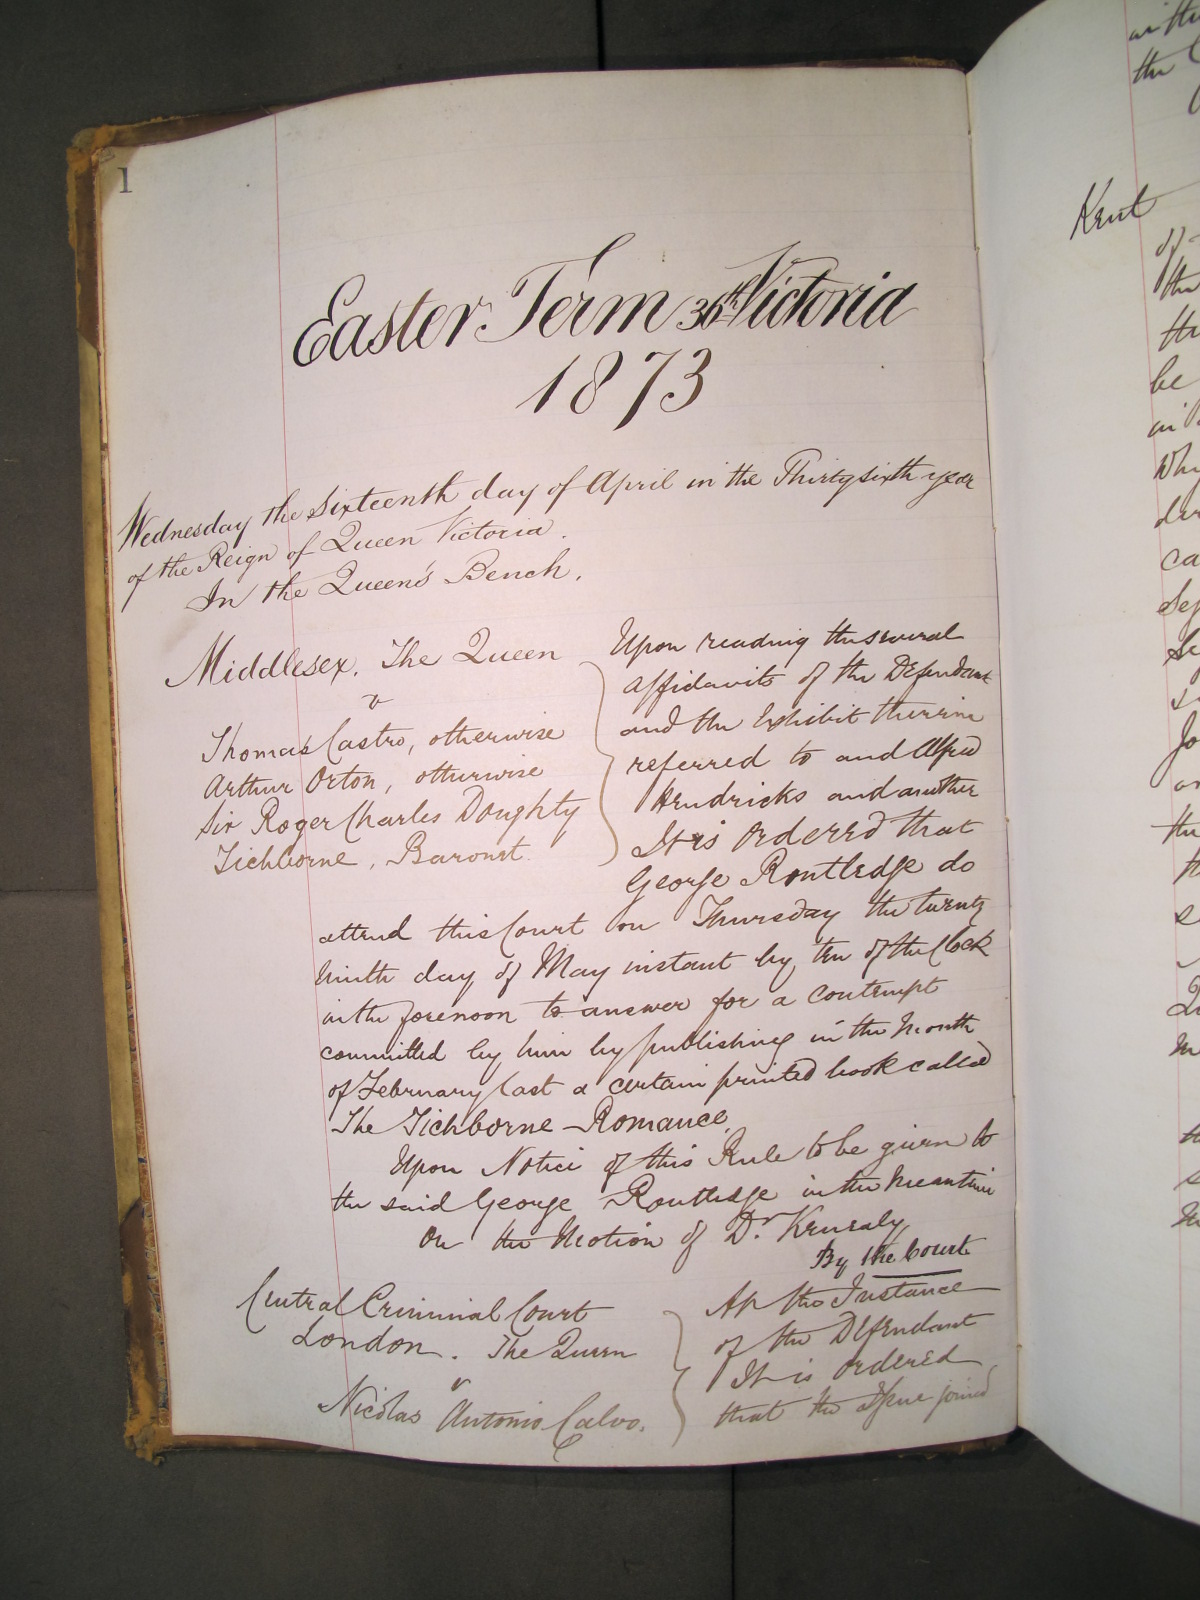 1
Easter Term 36th Victoria
1873
Wednesday the Sixteenth day of April in the Thirty sixth year
of the Reign of Queen Victoria.
In the Queen's Bench.
Middlesex. The Queen
v
Thomas Castro, otherwise
Arthur Orton, otherwise
Sir Roger Charles Doughty
Tichborne, Baronet.
Upon reading the several
affidavits of the Defendant
and the Exhibit therein
referred to and Alfred
Hendricks and another
It is Ordered that
George Routledge do
attend this Court on Thursday the twenty
ninth day of May instant by ten of the Clock
in the forenoon to answer for a contempt
committed by him by publishing in the Month
of February last a certain printed book called
The Tichborne Romance.
Upon Notice of this Rule to be given to
the said George Routledge in the Meantime
On the Motion of Dr. Kenealy
By the Court
Central Criminal Court
London. The Queen
v
Nicolas Antonio Calvo.
At the Instance
of the Defendant
It is Ordered
that the Issue joined
the
Kent
of
the
the
be
in
ca
the